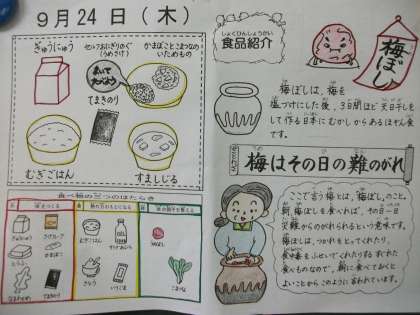 9月24日(木)
ぎゅうにゅう
セルフおにぎりのぐ
(うめさけ)
かまぼことこまつなの
いためもの
まいて
たべよう
てまきのり
むぎごはん
すましじる
食べ物の三つのはたらき
ぎゅうにゅう
とうふ
なまあげ
てまきのり
むぎごはん
さとう
こまつな
しょくひんしょうかい
食品紹介
梅ぼし
梅ぼしは、梅を
塩づけにした後、3日間ほど天日干し
して作る日本にむかしからあるほぞん食
です。
梅はその日の難のがれ
ここで言う梅とは、「梅ぼし」のこと。
朝、梅ぼしを食べれば、その日一日
災難からのがれられるという意味です。
梅ぼしは、つかれをとってくれたり、
食中毒をふせいでくれたりするすぐれた
食べものなので、朝に食べておくと
よいことからこのように言われています。